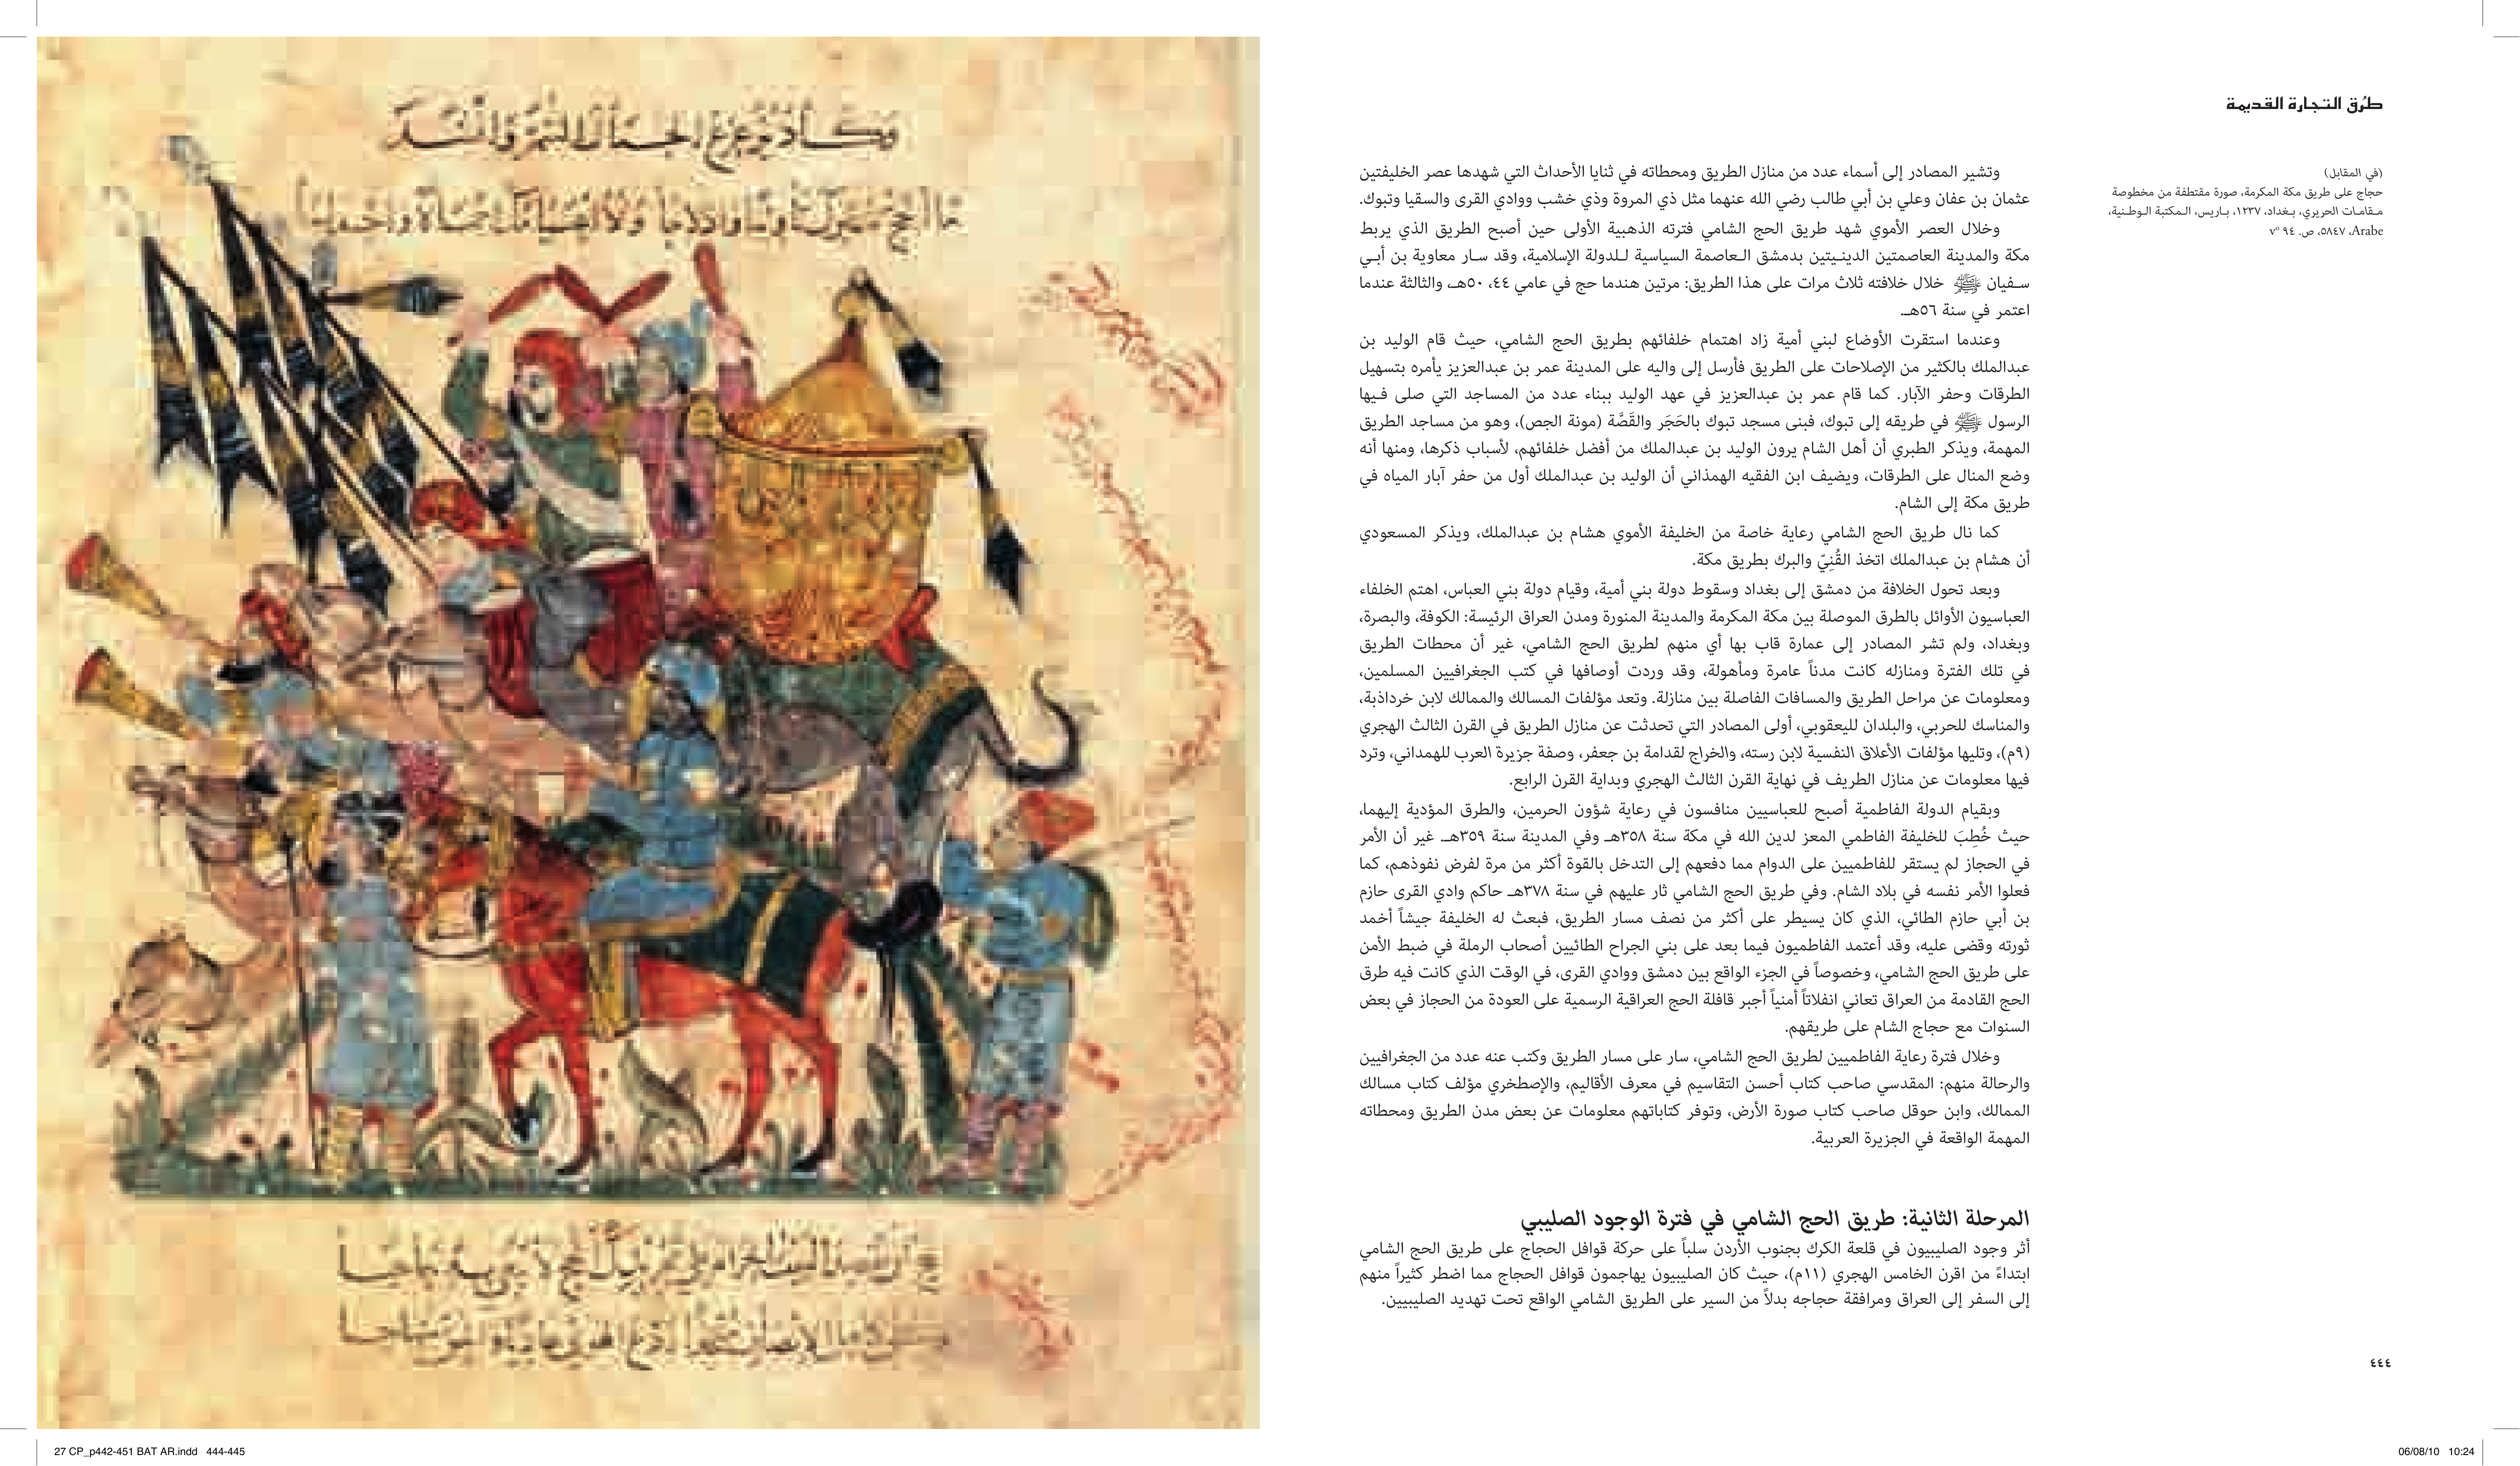 طرق التجارة القديمة
(في المقابل)
حجاج على طريق مكة المكرمة، صورة مقتطفة من مخطوصة
مـقامـات الحريري، بـغداد، ١٢٣٧، بـاريس، الـمكتبة الـوطـنية،
Arabe، ٥٨٤٧، ص. ٩٤ v°
وتشير المصادر إلى أسماء عدد من منازل الطريق ومحطاته في ثنايا الأحداث التي شهدها عصر الخليفتين
عثمان بن عفان وعلي بن أبي طالب رضي الله عنهما مثل ذي المروة وذي خشب ووادي القرى والسقيا وتبوك.
وخلال العصر الأموي شهد طريق الحج الشامي فترته الذهبية الأولى حين أصبح الطريق الذي يربط
مكة والمدينة العاصمتين الدينـيتين بدمشق الـعاصمة السياسية لـلدولة الإسلامية، وقد سـار معاوية بن أبـي
سـفيان ﷺ خلال خلافته ثلاث مرات على هذا الطريق: مرتين هندما حج في عامي ٤٤، ٥٠هـ، والثالثة عندما
اعتمر في سنة ٥٦هـ.
وعندما استقرت الأوضاع لبني أمية زاد اهتمام خلفائهم بطريق الحج الشامي، حيث قام الوليد بن
عبدالملك بالكثير من الإصلاحات على الطريق فأرسل إلى واليه على المدينة عمر بن عبدالعزيز يأمره بتسهيل
الطرقات وحفر الآبار. كما قام عمر بن عبدالعزيز في عهد الوليد ببناء عدد من المساجد التي صلى فـيها
الرسول ﷺ في طريقه إلى تبوك، فبنى مسجد تبوك بالحَجَر والقَصَّة (مونة الجص)، وهو من مساجد الطريق
المهمة، ويذكر الطبري أن أهل الشام يرون الوليد بن عبدالملك من أفضل خلفائهم، لأسباب ذكرها، ومنها أنه
وضع المنال على الطرقات، ويضيف ابن الفقيه الهمذاني أن الوليد بن عبدالملك أول من حفر آبار المياه في
طريق مكة إلى الشام.
كما نال طريق الحج الشامي رعاية خاصة من الخليفة الأموي هشام بن عبدالملك، ويذكر المسعودي
أن هشام بن عبدالملك اتخذ القُنِيّ والبرك بطريق مكة.
وبعد تحول الخلافة من دمشق إلى بغداد وسقوط دولة بني أمية، وقيام دولة بني العباس، اهتم الخلفاء
العباسيون الأوائل بالطرق الموصلة بين مكة المكرمة والمدينة المنورة ومدن العراق الرئيسة: الكوفة، والبصرة،
وبغداد، ولم تشر المصادر إلى عمارة قاب بها أي منهم لطريق الحج الشامي، غير أن محطات الطريق
في تلك الفترة ومنازله كانت مدناً عامرة ومأهولة، وقد وردت أوصافها في كتب الجغرافيين المسلمين،
ومعلومات عن مراحل الطريق والمسافات الفاصلة بين منازلة. وتعد مؤلفات المسالك والممالك لابن خرداذبة،
والمناسك للحربي، والبلدان لليعقوبي، أولى المصادر التي تحدثت عن منازل الطريق في القرن الثالث الهجري
(٩م)، وتليها مؤلفات الأعلاق النفسية لابن رسته، والخراج لقدامة بن جعفر، وصفة جزيرة العرب للهمداني، وترد
فيها معلومات عن منازل الطريف في نهاية القرن الثالث الهجري وبداية القرن الرابع.
وبقيام الدولة الفاطمية أصبح للعباسيين منافسون في رعاية شؤون الحرمين، والطرق المؤدية إليهما،
حيث خُطِبَ للخليفة الفاطمي المعز لدين الله في مكة سنة ٣٥٨هـ وفي المدينة سنة ٣٥٩هـ. غير أن الأمر
في الحجاز لم يستقر للفاطميين على الدوام مما دفعهم إلى التدخل بالقوة أكثر من مرة لفرض نفوذهم، كما
فعلوا الأمر نفسه في بلاد الشام. وفي طريق الحج الشامي ثار عليهم في سنة ٣٧٨هـ حاكم وادي القرى حازم
بن أبي حازم الطائي، الذي كان يسيطر على أكثر من نصف مسار الطريق، فبعث له الخليفة جيشاً أخمد
ثورته وقضى عليه، وقد أعتمد الفاطميون فيما بعد على بني الجراح الطائيين أصحاب الرملة في ضبط الأمن
على طريق الحج الشامي، وخصوصاً في الجزء الواقع بين دمشق ووادي القرى، في الوقت الذي كانت فيه طرق
الحج القادمة من العراق تعاني انفلاتاً أمنياً أجبر قافلة الحج العراقية الرسمية على العودة من الحجاز في بعض
السنوات مع حجاج الشام على طريقهم.
وخلال فترة رعاية الفاطميين لطريق الحج الشامي، سار على مسار الطريق وكتب عنه عدد من الجغرافيين
والرحالة منهم: المقدسي صاحب كتاب أحسن التقاسيم في معرف الأقاليم، والإصطخري مؤلف كتاب مسالك
الممالك، وابن حوقل صاحب كتاب صورة الأرض، وتوفر كتاباتهم معلومات عن بعض مدن الطريق ومحطاته
المهمة الواقعة في الجزيرة العربية.
المرحلة الثانية: طريق الحج الشامي في فترة الوجود الصليبي
أثر وجود الصليبيون في قلعة الكرك بجنوب الأردن سلباً على حركة قوافل الحجاج على طريق الحج الشامي
ابتداءً من اقرن الخامس الهجري (١١م)، حيث كان الصليبيون يهاجمون قوافل الحجاج مما اضطر كثيراً منهم
إلى السفر إلى العراق ومرافقة حجاجه بدلاً من السير على الطريق الشامي الواقع تحت تهديد الصليبيين.
٤٤٤
27 CP_p442-451 BAT AR.indd 444-445
06/08/10 10:24